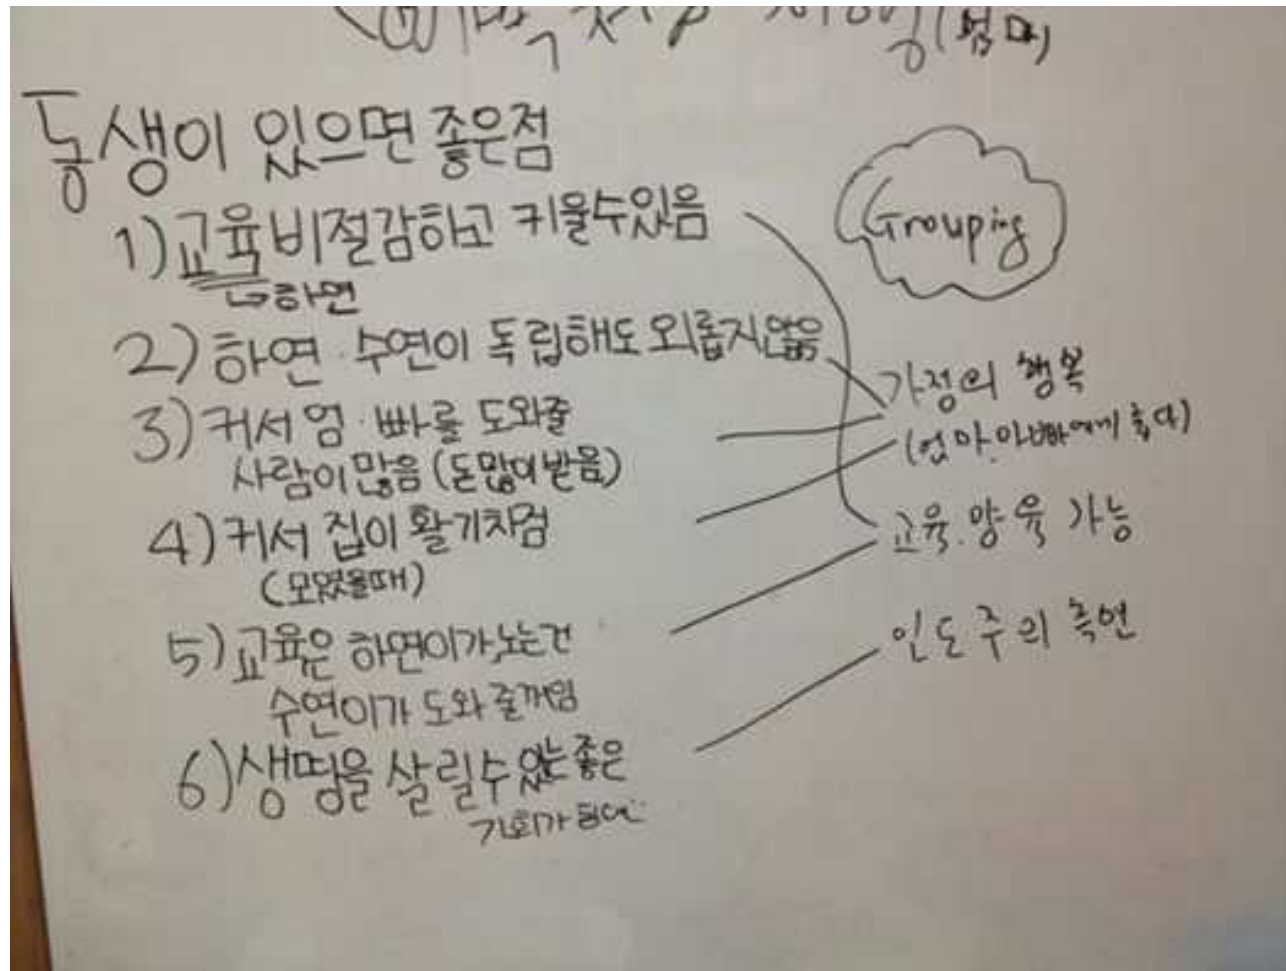 동생이 있으면 좋은점
1) 교육비절감하고 키울수있음
↳하연
2) 하연·수연이 독립해도 외롭지않음
3) 커서 엄·빠를 도와줄
사람이많음 (돈많이받음)
4) 커서 집이 활기차짐
(모였을때)
5) 교육은 하연이가, 노는건
수연이가 도와줄꺼임
6) 생명을 살릴수있는 좋은
기회가
Grouping
가정의 행복
(엄마.아빠에게 좋다)
교육.양육 가능
인도주의 측면